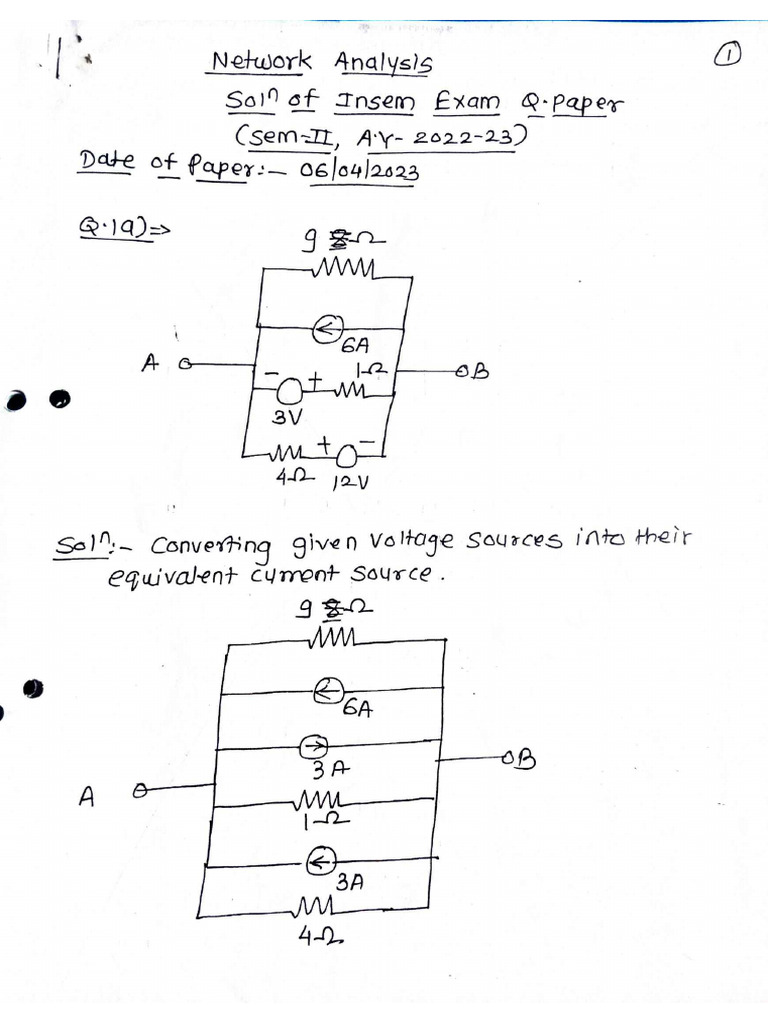 ①
Network Analysis
Solⁿ of Insem Exam Q.paper
(Sem-II, A.Y- 2022-23)
Date of Paper:- 06/04/2023
Q.1a)⇒
9 Ω
6A
A
1Ω
B
- +
3V
+ -
4Ω 12V
Solⁿ:- Converting given voltage sources into their
equivalent current source.
9 Ω
6A
3A
B
A
1Ω
3A
4Ω